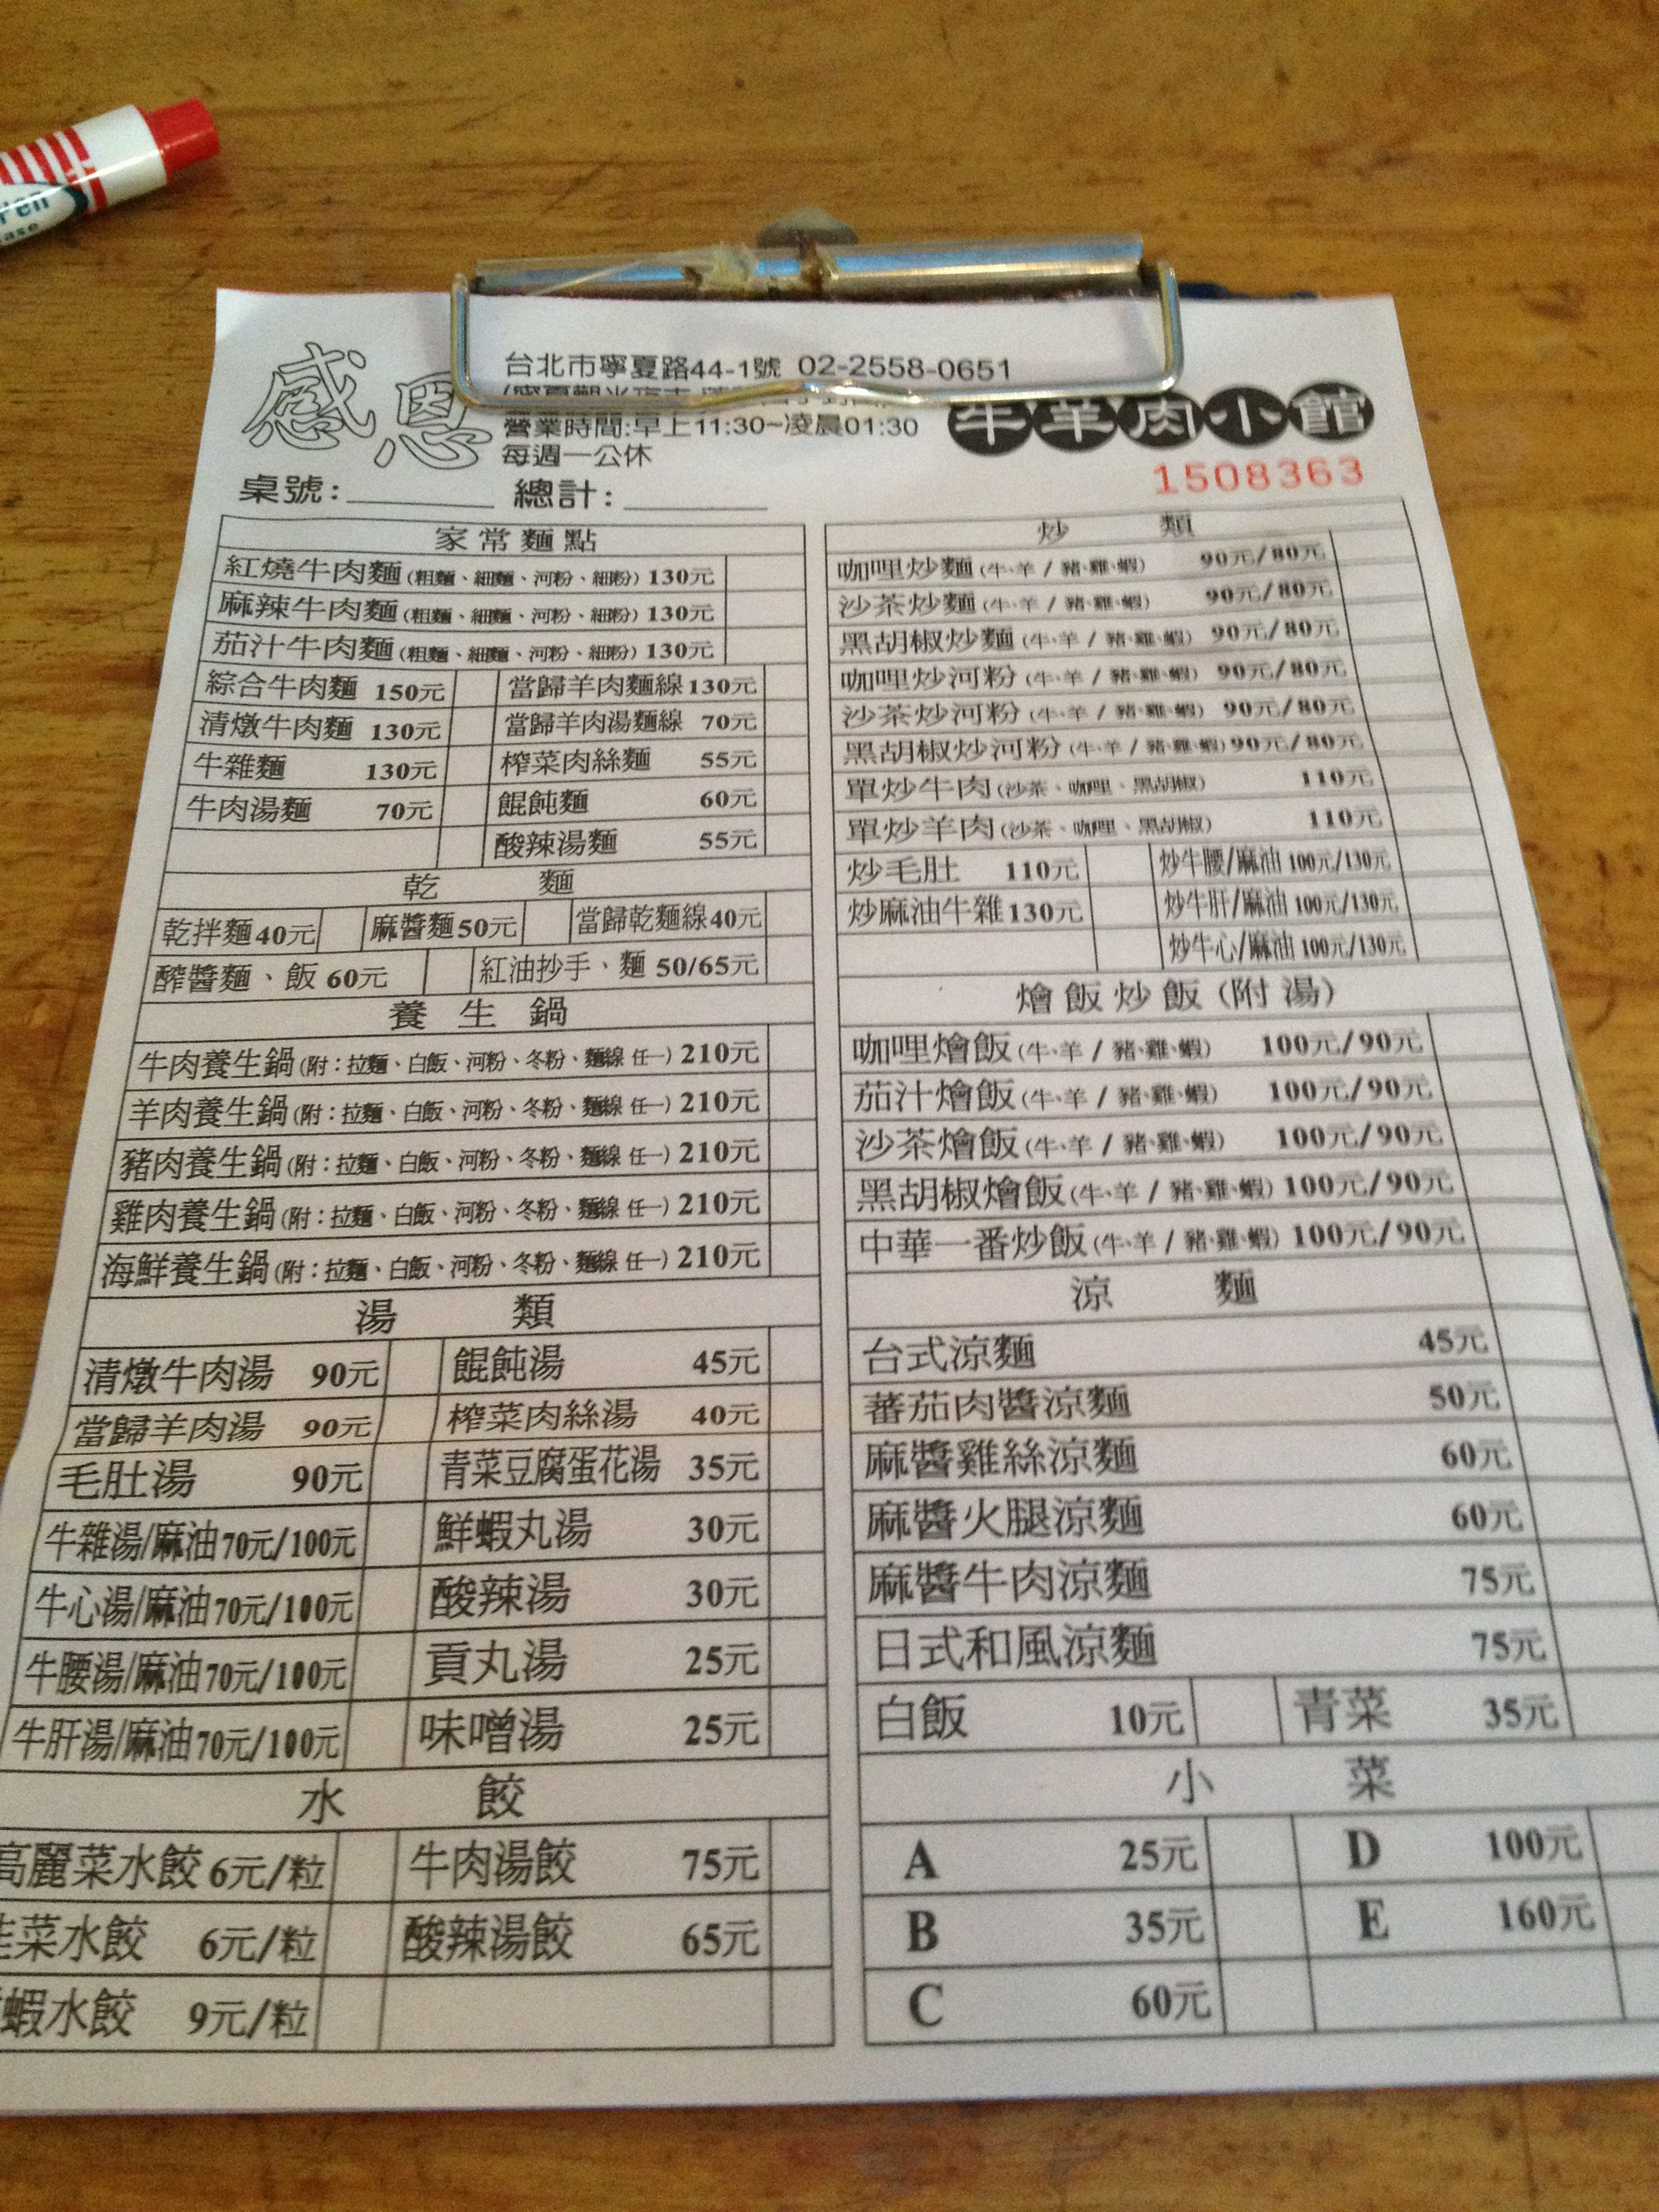 ren
ase
感恩
台北市寧夏路44-1號 02-2558-0651
營業時間:早上11:30~凌晨01:30
每週一公休
牛羊肉小館
1508363
桌號: 總計:
家常麵點
紅燒牛肉麵(粗麵、細麵、河粉、細粉) 130元
麻辣牛肉麵(粗麵、細麵、河粉、細粉) 130元
茄汁牛肉麵(粗麵、細麵、河粉、細粉) 130元
綜合牛肉麵 150元 當歸羊肉麵線 130元
清燉牛肉麵 130元 當歸羊肉湯麵線 70元
牛雜麵 130元 榨菜肉絲麵 55元
牛肉湯麵 70元 餛飩麵 60元
酸辣湯麵 55元
乾麵
乾拌麵 40元 麻醬麵 50元 當歸乾麵線 40元
醡醬麵、飯 60元 紅油抄手、麵 50/65元
養生鍋
牛肉養生鍋(附:拉麵、白飯、河粉、冬粉、麵線 任一) 210元
羊肉養生鍋(附:拉麵、白飯、河粉、冬粉、麵線 任一) 210元
豬肉養生鍋(附:拉麵、白飯、河粉、冬粉、麵線 任一) 210元
雞肉養生鍋(附:拉麵、白飯、河粉、冬粉、麵線 任一) 210元
海鮮養生鍋(附:拉麵、白飯、河粉、冬粉、麵線 任一) 210元
湯類
清燉牛肉湯 90元 餛飩湯 45元
當歸羊肉湯 90元 榨菜肉絲湯 40元
毛肚湯 90元 青菜豆腐蛋花湯 35元
牛雜湯/麻油 70元/100元 鮮蝦丸湯 30元
牛心湯/麻油 70元/100元 酸辣湯 30元
牛腰湯/麻油 70元/100元 貢丸湯 25元
牛肝湯/麻油 70元/100元 味噌湯 25元
水餃
高麗菜水餃 6元/粒 牛肉湯餃 75元
菜水餃 6元/粒 酸辣湯餃 65元
蝦水餃 9元/粒
炒類
咖哩炒麵(牛、羊 / 豬、雞、蝦) 90元/80元
沙茶炒麵(牛、羊 / 豬、雞、蝦) 90元/80元
黑胡椒炒麵(牛、羊 / 豬、雞、蝦) 90元/80元
咖哩炒河粉(牛、羊 / 豬、雞、蝦) 90元/80元
沙茶炒河粉(牛、羊 / 豬、雞、蝦) 90元/80元
黑胡椒炒河粉(牛、羊 / 豬、雞、蝦) 90元/80元
單炒牛肉(沙茶、咖哩、黑胡椒) 110元
單炒羊肉(沙茶、咖哩、黑胡椒) 110元
炒毛肚 110元 炒牛腰/麻油 100元/130元
炒麻油牛雜 130元 炒牛肝/麻油 100元/130元
炒牛心/麻油 100元/130元
燴飯炒飯(附湯)
咖哩燴飯(牛、羊 / 豬、雞、蝦) 100元/90元
茄汁燴飯(牛、羊 / 豬、雞、蝦) 100元/90元
沙茶燴飯(牛、羊 / 豬、雞、蝦) 100元/90元
黑胡椒燴飯(牛、羊 / 豬、雞、蝦) 100元/90元
中華一番炒飯(牛、羊 / 豬、雞、蝦) 100元/90元
涼麵
台式涼麵 45元
蕃茄肉醬涼麵 50元
麻醬雞絲涼麵 60元
麻醬火腿涼麵 60元
麻醬牛肉涼麵 75元
日式和風涼麵 75元
白飯 10元 青菜 35元
小菜
A 25元 D 100元
B 35元 E 160元
C 60元